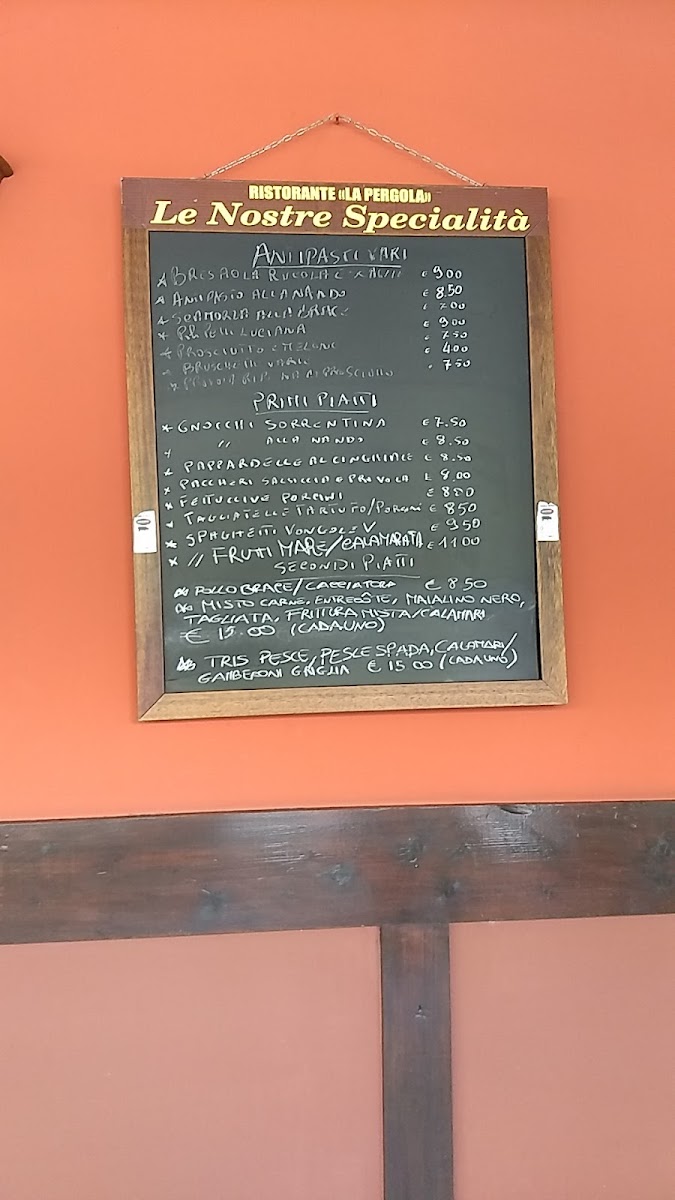 RISTORANTE «LA PERGOLA»
Le Nostre Specialità
ANTIPASTI VARI
BRESAOLA RUCOLA E € 9.00
ANTIPASTO ALLA NANDO € 8.50
SCAMORZA ALLA BRACE € 7.00
LUCIANA € 9.00
PROSCIUTTO E MELONE € 7.50
BRUSCHETTE VARIE € 4.00
PROVOLA PROSCIUTTO 7.50
PRIMI PIATTI
GNOCCHI SORRENTINA € 7.50
" ALLA NANDO € 8.50
PAPPARDELLE AL CINGHIALE € 8.50
PACCHERI SALSICCIA E PROVOLA € 8.00
FETTUCCINE PORCINI € 8.00
TAGLIATELLE TARTUFO/PORCINI € 8.50
SPAGHETTI VONGOLE V € 9.50
" FRUTTI MARE/CALAMARATA € 11.00
SECONDI PIATTI
POLLO BRACE/CACCIATORA € 8.50
MISTO CARNE, ENTRECÔTE, MAIALINO NERO,
TAGLIATA, FRITTURA MISTA/CALAMARI
€ 15.00 (CADAUNO)
TRIS PESCE, PESCE SPADA, CALAMARI/
GAMBERONI GRIGLIA € 15.00 (CADAUNO)